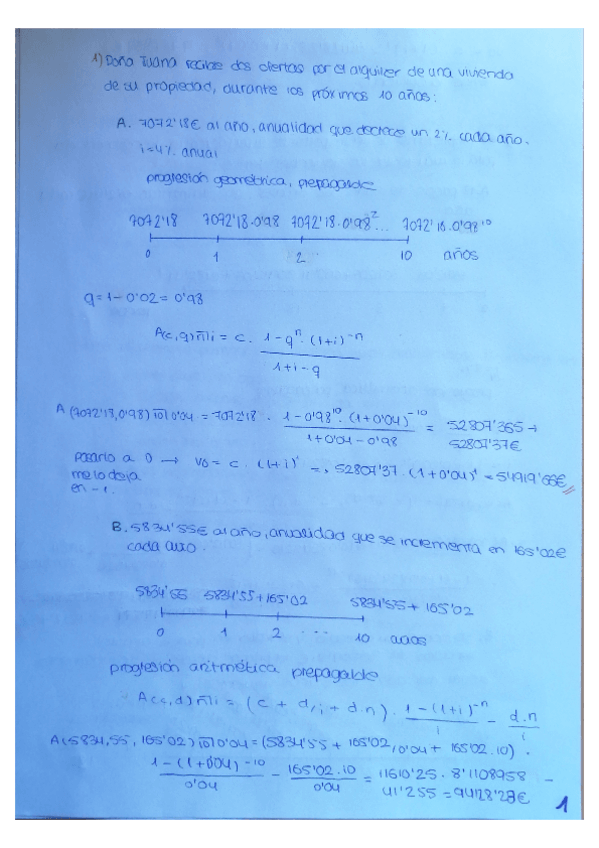 1) Doña Juana recibe dos ofertas por el alquiler de una vivienda
de su propiedad, durante los próximos 10 años:
A. 7072'18€ al año, anualidad que decrece un 2% cada año.
i=4% anual
progresión geométrica, prepagable
7072'18 7072'18·0'98 7072'18·0'98² ... 7072'18·0'98¹⁰
0 1 2 ... 10 años
q=1-0'02=0'98
A(c,q)n̅|i = c · (1-qⁿ·(1+i)⁻ⁿ)/(1+i-q)
A(7072'18,0'98)1̅0̅|0'04 = 7072'18 · (1-0'98¹⁰·(1+0'04)⁻¹⁰)/(1+0'04-0'98) = 52807'365 →
52807'37€
pasarlo a 0 → V0 = c·(1+i)¹ = 52807'37·(1+0'04)¹ = 54919'66€
me lo deja
en -1.
B. 5834'55€ al año, anualidad que se incrementa en 165'02€
cada año.
5834'55 5834'55+165'02 5834'55+165'02
0 1 2 ... 10 años
progresión aritmética prepagable
A(c,d)n̅|i = (c + d/i + d.n) · (1-(1+i)⁻ⁿ)/i - d.n/i
A(5834,55, 165'02)1̅0̅|0'04 = (5834'55 + 165'02/0'04 + 165'02.10) ·
(1-(1+0'04)-10)/0'04 - 165'02.10/0'04 = 11610'25 . 8'1108958 -
41'255 = 94128'28€
1